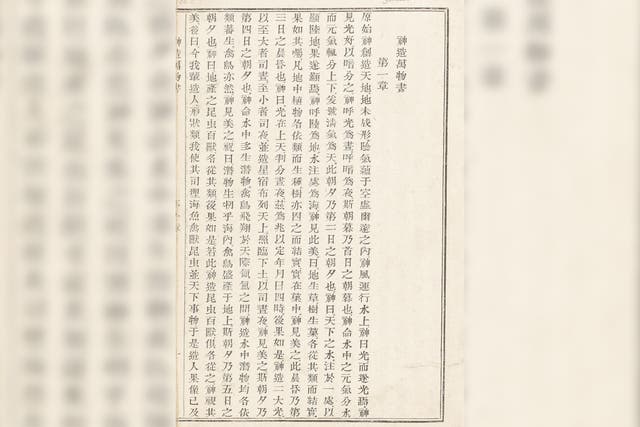 神造萬物書
第一章
原始神創造天地地未成形陰氣蘊于空虛爾邃之內神風運行水上神曰光而遂光焉神
見光好以暗分之神呼光為晝呼暗為夜斯朝暮乃首日之朝暮也神命水中之元氣分水
而元氣輒分上下爰號清氣為天此朝夕乃第二日之朝夕也神曰天下之水注於一處以
顯陸地果遂顯焉神呼陸為地水注處為海神見此美曰地生草樹生菓各從其類而結實
果如其囑凡地中植物各依類而生種樹亦因之而結實實在菓中神見美之此晨昏乃第
三日之晨昏也神曰光在上天判分晝夜茲為兆以定年月日四時後果如是神造二大光
以至大者司晝至小者司夜並造星宿布列天上照臨下土以司晝夜神見美之斯朝夕乃
第四日之朝夕也神命水中多生潛物禽鳥飛翔於天陸氣之間神造水中潛物均各依
類蕃生禽鳥亦然神見美之祝曰潛物生物乎海內禽鳥盛產于地上斯朝夕乃第五日之
朝夕也神曰地產之昆虫百獸各從其類後果如是若此神造昆虫百獸俱各從之神視其
美善曰今我輩造人形狀類我使其司理海魚禽獸昆虫並天下事物于是造人果像己及
神造萬物書